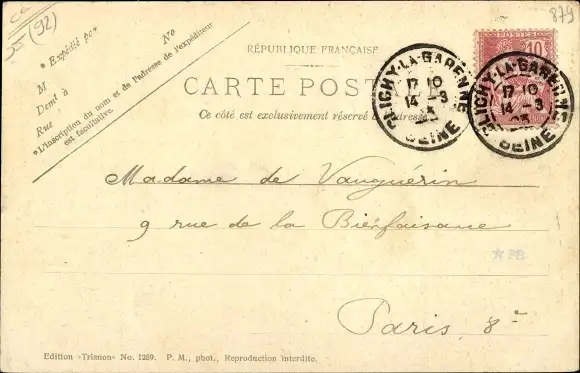 (92)
879
* Expédié par
No
M
Demt à
Rue
*L'inscription du nom et de l'adresse de l'expéditeur
est facultative.
RÉPUBLIQUE FRANÇAISE
CARTE POSTALE
Ce côté est exclusivement réservé à l'adresse
10
CLICHY-LA-GARENNE
17 10
14 -3
03
SEINE
CLICHY-LA-GARENNE
17 10
14 -3
03
SEINE
Madame de Vauguérin
9 rue de la Bienfaisance
*PB
Paris, 8e
Edition «Trianon» No. 1289. P. M., phot., Reproduction interdite.